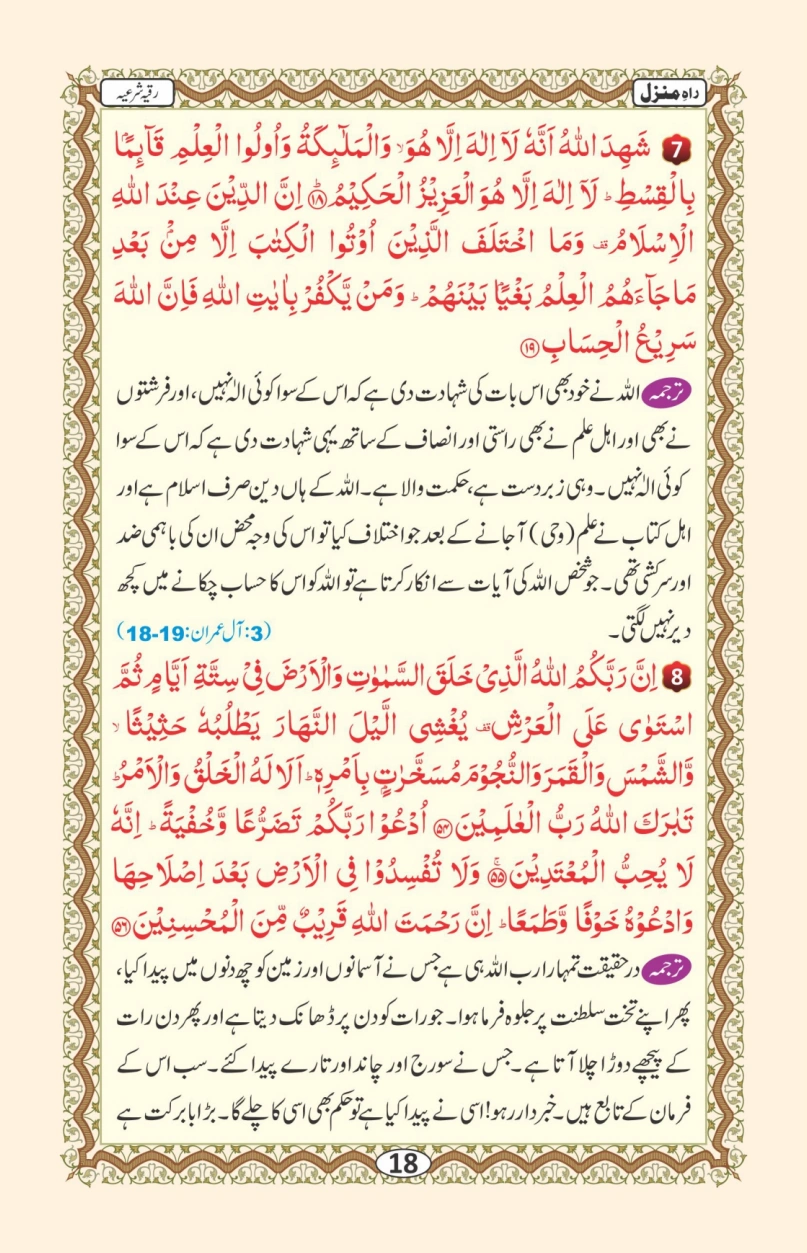 راہِ منزل
رقیہ شرعیہ
7 شَهِدَ اللّٰهُ اَنَّهٗ لَآ اِلٰهَ اِلَّا هُوَ ۙ وَالْمَلٰٓئِكَةُ وَاُولُوا الْعِلْمِ قَآئِمًۢا
بِالْقِسْطِ ؕ لَآ اِلٰهَ اِلَّا هُوَ الْعَزِيْزُ الْحَكِيْمُ ؕ ﴿۱۸﴾ اِنَّ الدِّيْنَ عِنْدَ اللّٰهِ
الْاِسْلَامُ ۫ وَمَا اخْتَلَفَ الَّذِيْنَ اُوْتُوا الْكِتٰبَ اِلَّا مِنْۢ بَعْدِ
مَا جَآءَهُمُ الْعِلْمُ بَغْيًۢا بَيْنَهُمْ ؕ وَمَنْ يَّكْفُرْ بِاٰيٰتِ اللّٰهِ فَاِنَّ اللّٰهَ
سَرِيْعُ الْحِسَابِ ﴿۱۹﴾
ترجمہ اللہ نے خود بھی اس بات کی شہادت دی ہے کہ اس کے سوا کوئی الٰہ نہیں، اور فرشتوں
نے بھی اور اہل علم نے بھی راستی اور انصاف کے ساتھ یہی شہادت دی ہے کہ اس کے سوا
کوئی الٰہ نہیں۔ وہی زبردست ہے، حکمت والا ہے۔ اللہ کے ہاں دین صرف اسلام ہے اور
اہل کتاب نے علم (وحی) آجانے کے بعد جو اختلاف کیا تو اس کی وجہ محض ان کی باہمی ضد
اور سرکشی تھی۔ جو شخص اللہ کی آیات سے انکار کرتا ہے تو اللہ کو اس کا حساب چکانے میں کچھ
دیر نہیں لگتی۔ (3: آل عمران: 19-18)
8 اِنَّ رَبَّكُمُ اللّٰهُ الَّذِيْ خَلَقَ السَّمٰوٰتِ وَالْاَرْضَ فِيْ سِتَّةِ اَيَّامٍ ثُمَّ
اسْتَوٰى عَلَى الْعَرْشِ ۫ يُغْشِى الَّيْلَ النَّهَارَ يَطْلُبُهٗ حَثِيْثًا ۙ
وَّالشَّمْسَ وَالْقَمَرَ وَالنُّجُوْمَ مُسَخَّرٰتٍۭ بِاَمْرِهٖ ؕ اَلَا لَهُ الْخَلْقُ وَالْاَمْرُ ؕ
تَبٰرَكَ اللّٰهُ رَبُّ الْعٰلَمِيْنَ ﴿۵۴﴾ اُدْعُوْا رَبَّكُمْ تَضَرُّعًا وَّخُفْيَةً ؕ اِنَّهٗ
لَا يُحِبُّ الْمُعْتَدِيْنَ ۚ ﴿۵۵﴾ وَلَا تُفْسِدُوْا فِى الْاَرْضِ بَعْدَ اِصْلَاحِهَا
وَادْعُوْهُ خَوْفًا وَّطَمَعًا ؕ اِنَّ رَحْمَتَ اللّٰهِ قَرِيْبٌ مِّنَ الْمُحْسِنِيْنَ ﴿۵۶﴾
ترجمہ درحقیقت تمہارا رب اللہ ہی ہے جس نے آسمانوں اور زمین کو چھ دنوں میں پیدا کیا،
پھر اپنے تخت سلطنت پر جلوہ فرما ہوا۔ جو رات کو دن پر ڈھانک دیتا ہے اور پھر دن رات
کے پیچھے دوڑا چلا آتا ہے۔ جس نے سورج اور چاند اور تارے پیدا کئے۔ سب اس کے
فرمان کے تابع ہیں۔ خبردار رہو! اسی نے پیدا کیا ہے تو حکم بھی اسی کا چلے گا۔ بڑا بابرکت ہے
18